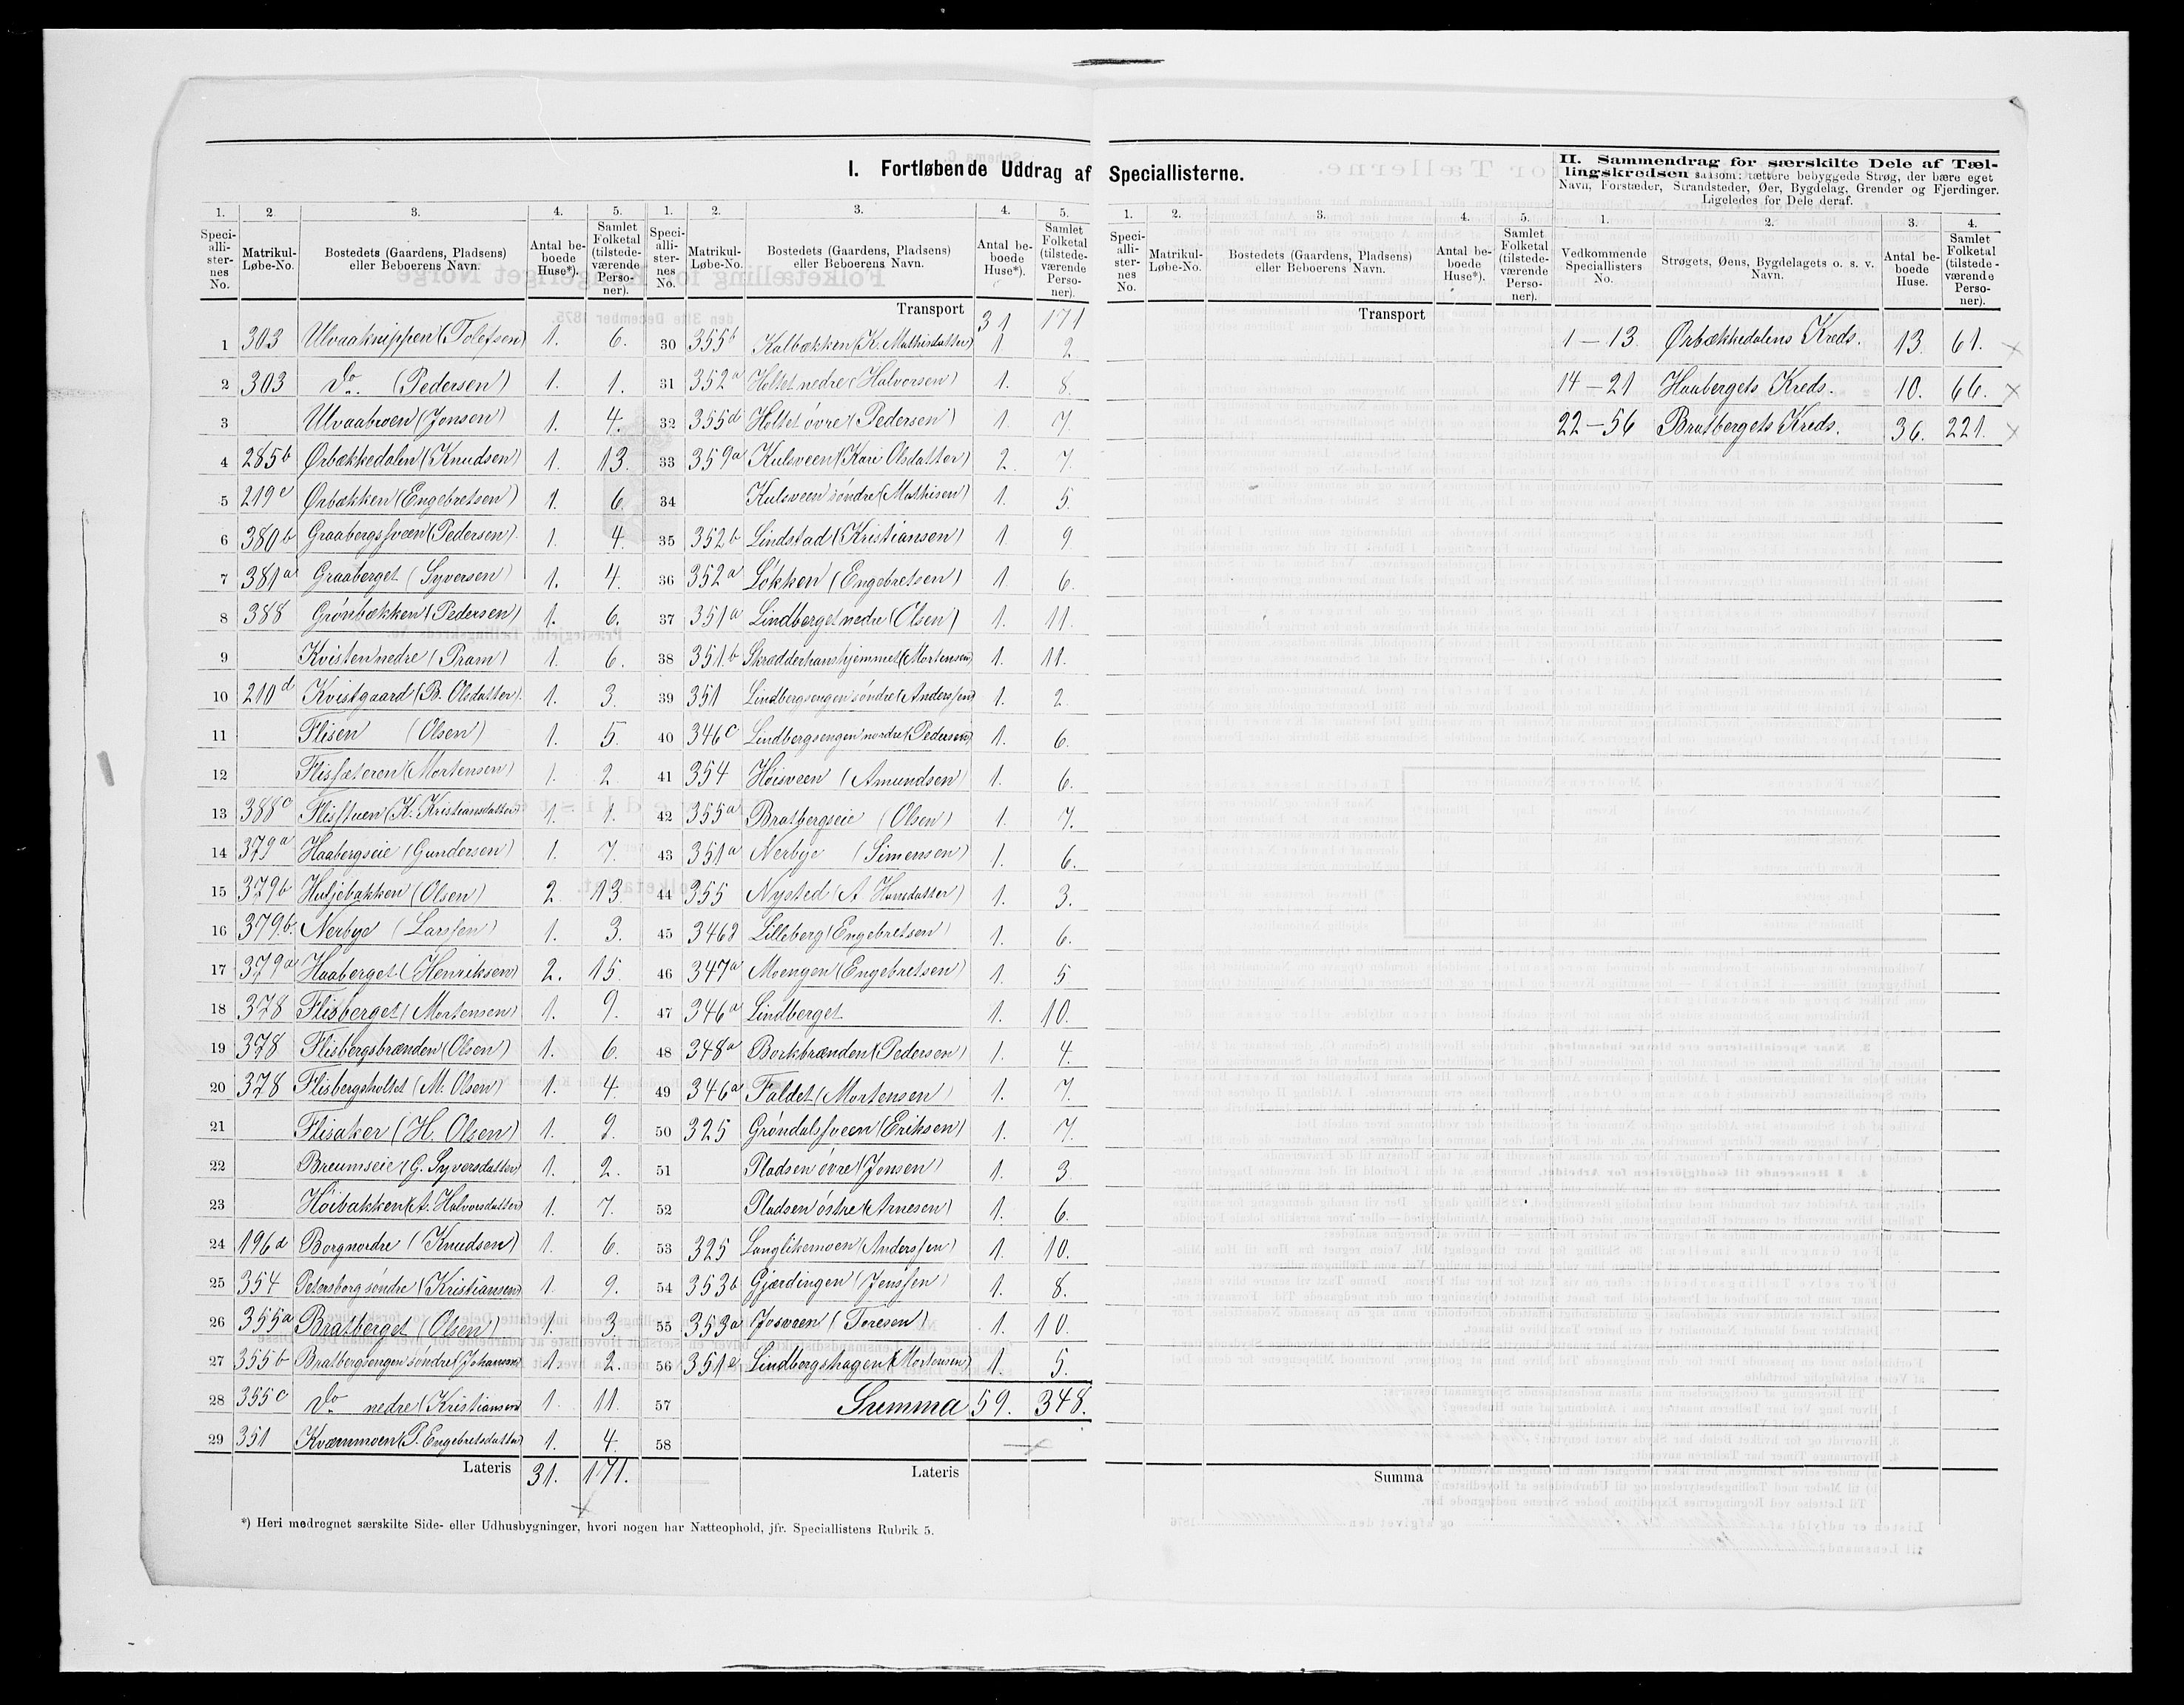 I. Fortløbende Uddrag af Speciallisterne.
II. Sammendrag for særskilte Dele af Tæl-
lingskredsen saasom: tættere bebyggede Strøg, der bære eget
Navn, Forstæder, Strandsteder, Øer, Bygdelag, Grender og Fjerdinger.
Ligeledes for Dele deraf.
1. 2. 3. 4. 5.
Speci-alli-ster-nes No. Matrikul-Løbe-No. Bostedets (Gaardens, Pladsens) eller Beboerens Navn. Antal be-boede Huse*). Samlet Folketal (tilstede-værende Perso-ner).
1 303 Ulvaaknippen (Tolefsen) 1. 6.
2 303 Do (Pedersen) 1. 1.
3 Ulvaaboen (Jonsen) 1. 4.
4 285b Ørbækkedalen (Knudsen) 1. 13.
5 219c Ørbækken (Engebretsen) 1. 6
6 380b Graabergssveen (Pedersen) 1. 4.
7 381a Graaberget (Syversen) 1. 4.
8 388 Grönbækken (Pedersen) 1. 6.
9 Kvisten nedre (Pram) 1. 6.
10 210d Kvistgaard (B. Olsdatter) 1. 3.
11 Flisen (Olsen) 1. 5.
12 Flissæteren (Mortensen) 1. 2
13 388c Flisstuen (K. Kristiansdatter) 1. 1.
14 379a Haabergseie (Gundersen) 1. 7.
15 379b Huljebakken (Olsen) 2. 13.
16 379.b. Nerbye (Larssen) 1. 3.
17 379a Haaberget (Henriksen) 2. 15.
18 378 Flisberget (Mortensen) 1. 9.
19 378 Flisbergsbrænden (Olsen) 1. 6.
20 378 Flisbergsholtet (M. Olsen) 1. 4.
21 Flisaker (H. Olsen) 1. 9.
22 Breumseie (G. Syversdatter) 1. 2.
23 Höibakken (A. Halvorsdatter) 1. 7.
24 196d Borgnordre (Knudsen) 1. 6.
25 354 Petersborg söndre (Kristiansen) 1. 9.
26 355a Bratberget (Olsen) 1. 3.
27 355b Bratbergsengen söndre (Johansen) 1. 2.
28 355c Do nedre (Kristiansen) 1. 11.
29 351 Kværnmoen (P. Engebretsdatter) 1. 4.
Lateris 31. 171.
1. 2. 3. 4. 5.
Speci-alli-ster-nes No. Matrikul-Løbe-No. Bostedets (Gaardens, Pladsens) eller Beboerens Navn. Antal be-boede Huse*). Samlet Folketal (tilstede-værende Perso-ner).
Transport 31 171
30 355b Kalbækken (K. Mathisdatter) 1 2
31 352a Holtet nedre (Halvorsen) 1. 8.
32 355d Holtet övre (Pedersen) 1. 7.
33 359a Kulsveen (Kari Olsdatter) 2. 7.
34 Kulsveen söndre (Mathisen) 1. 5.
35 352b Lindstad (Kristiansen) 1. 9
36 352a Lökken (Engebretsen) 1. 6.
37 351a Lindberget nedre (Olsen) 1. 11.
38 351.b Skrædderhanshjemmet (Mortensen) 1. 11.
39 351 Lindbergsengen söndre (Anderssen) 1. 2
40 346c Lindbergsengen nordre (Pedersen) 1. 6.
41 354 Höisveen (Amundsen) 1. 6.
42 355a Bratbergseie (Olsen) 1. 7.
43 351a Nerbye (Simensen) 1. 6.
44 355 Nysted (A Hansdatter) 1. 3.
45 346d Lilleberg (Engebretsen) 1. 6.
46 347a Moengen (Engebretsen) 1. 5
47 346a Lindberget 1. 10.
48 348a Borkbrænden (Pedersen) 1. 4.
49 346a Faldet (Mortensen) 1. 7.
50 325 Gröndalssveen (Eriksen) 1. 7.
51 Pladsen övre (Jensen) 1. 3
52 Pladsen östre (Arnesen) 1. 6.
53 325 Langlikemoen (Anderssen) 1. 10.
54 353b Gjærdingen (Jenssen) 1. 8.
55 353a Josveen (Toresen) 1. 10.
56 351e Lindbergshagen (Mortensen) 1. 5.
57 Summa 59. 348.
58
Lateris
1. 2. 3. 4. 5.
Speci-alli-ster-nes No. Matrikul-Løbe-No. Bostedets (Gaardens, Pladsens) eller Beboerens Navn. Antal be-boede Huse*). Samlet Folketal (tilstede-værende Perso-ner).
Transport
Summa
1. 2. 3. 4.
Vedkommende Speciallisters No. Strøgets, Øens, Bygdelagets o. s. v. Navn. Antal be-boede Huse. Samlet Folketal (tilstede-værende Perso-ner).
1 – 13. Ørbækkedalens Kreds. 13. 61.
14 – 21 Haabergets Kreds. 10. 66.
22 – 56 Bratbergets Kreds. 36. 221.
*) Heri medregnet særskilte Side- eller Udhusbygninger, hvori nogen har Natteophold, jfr. Speciallistens Rubrik 5.